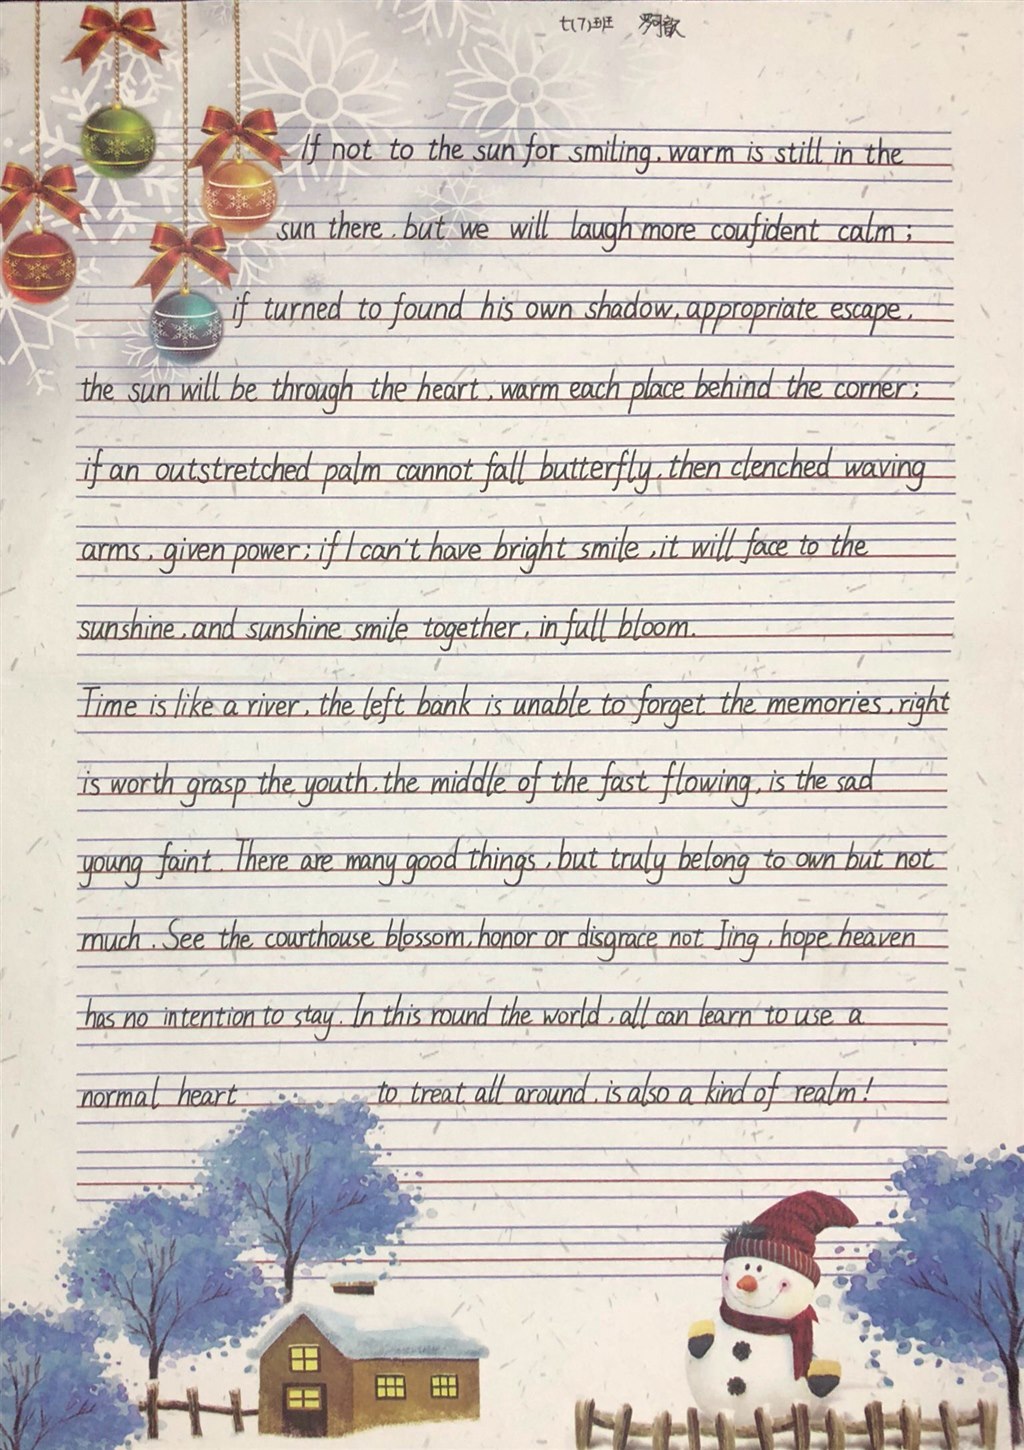 七(7)班
If not to the sun for smiling, warm is still in the
sun there, but we will laugh more coufident calm;
if turned to found his own shadow, appropriate escape,
the sun will be through the heart, warm each place behind the corner;
if an outstretched palm cannot fall butterfly, then clenched waving
arms, given power; if I can't have bright smile, it will face to the
sunshine, and sunshine smile together, in full bloom.
Time is like a river, the left bank is unable to forget the memories, right
is worth grasp the youth, the middle of the fast flowing, is the sad
young faint. There are many good things, but truly belong to own but not
much. See the courthouse blossom, honor or disgrace not Jing, hope heaven
has no intention to stay. In this round the world, all can learn to use a
normal heart to treat all around, is also a kind of realm!